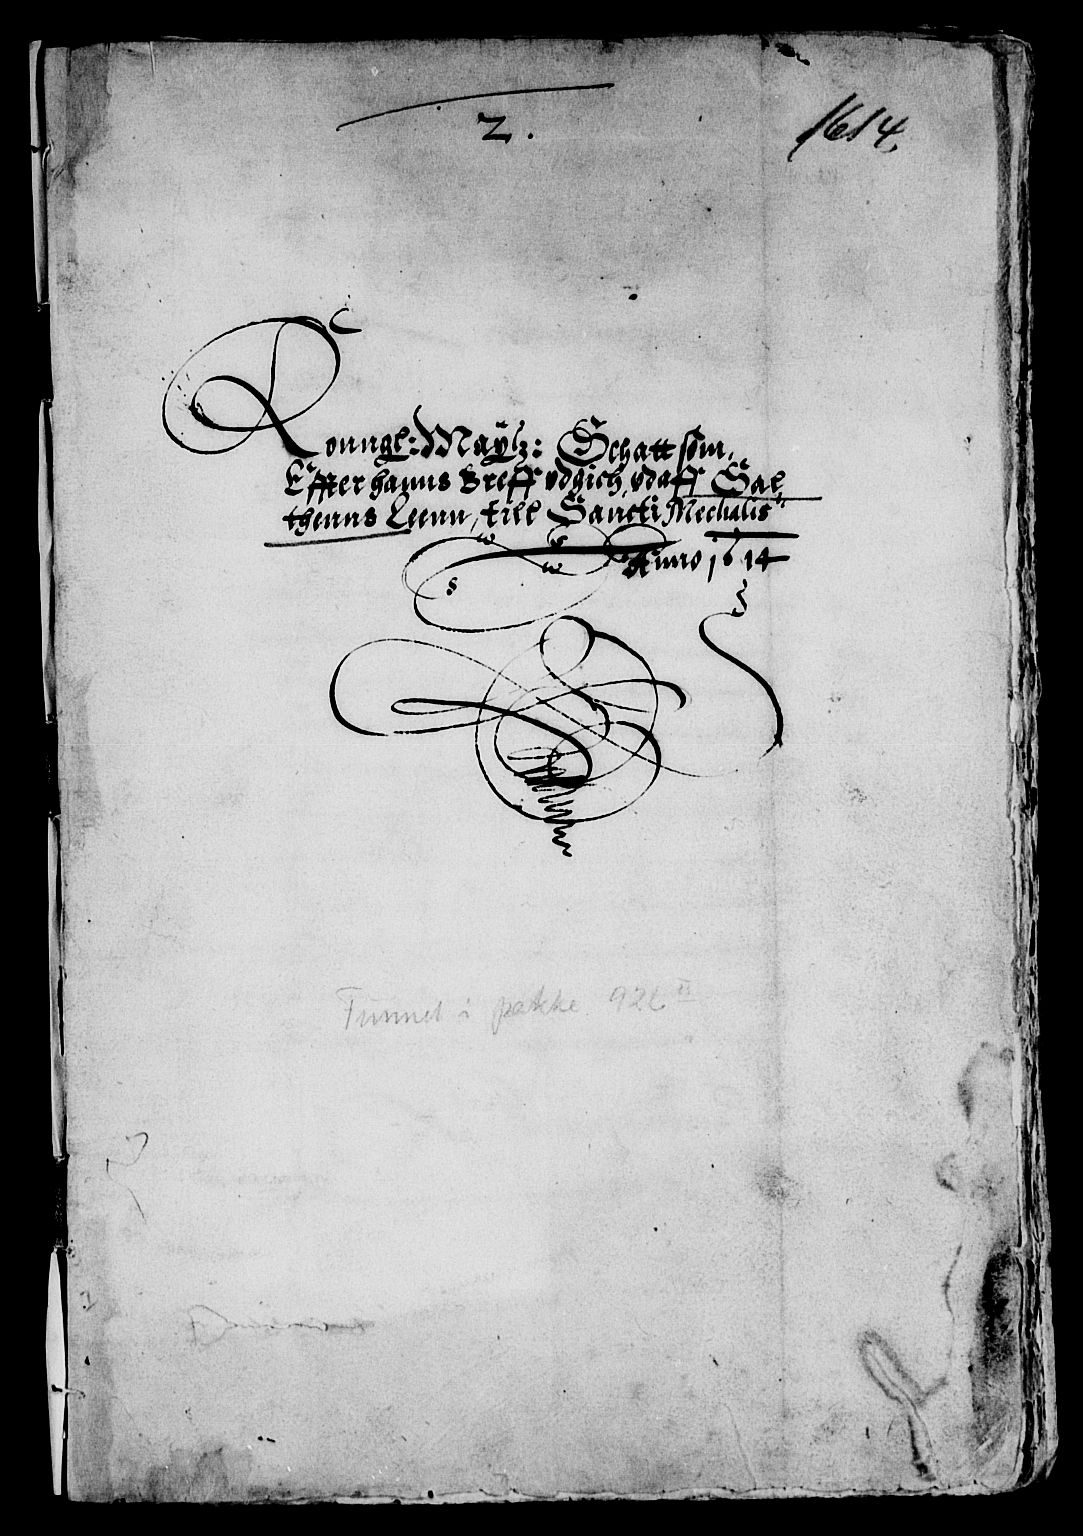 2.
1614
Konngl: Maÿtz: Schatt som,
Effter hanns Breff vdgich, vdaff Sal
thenns Leenn, till Sancti Mechelis
Anno 1614
Funnet i pakke 92